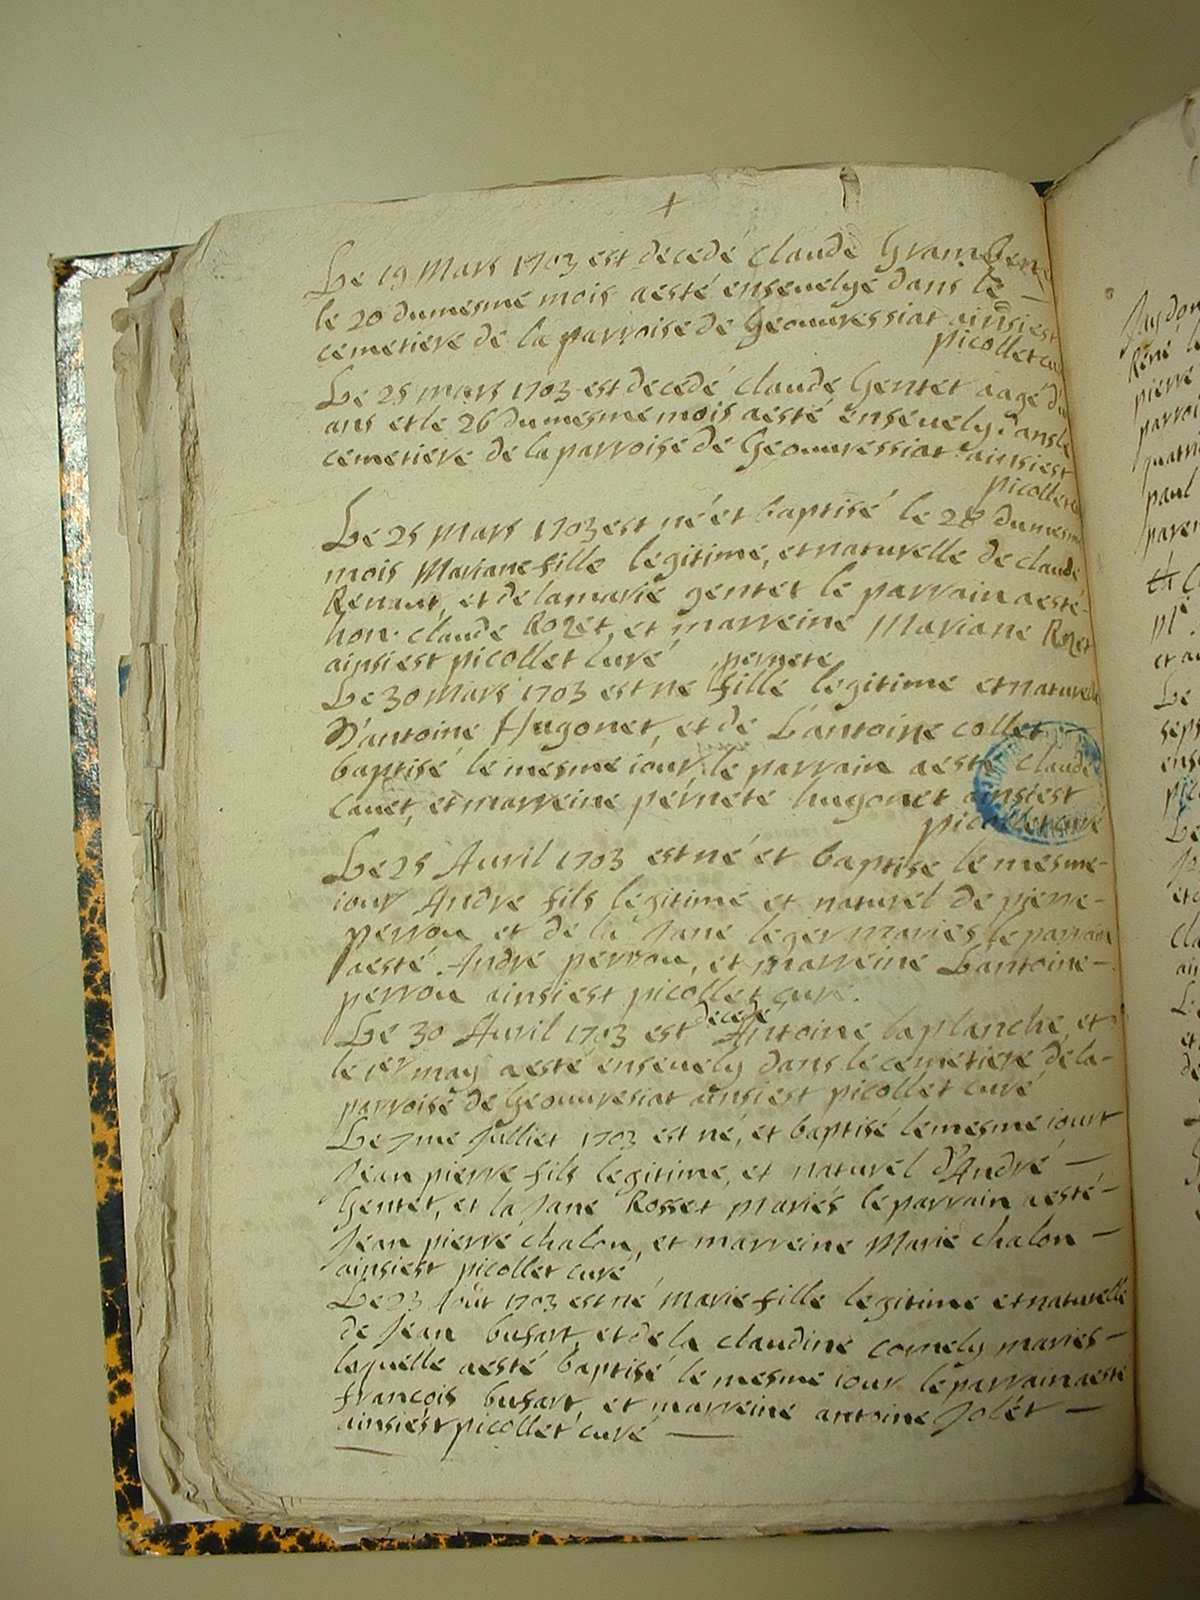 +
Le 19 Mars 1703 est decedé Claude
le 20 du mesme mois a esté ensevelye dans le
cemetiere de la parroise de Geouvressiat ainsi est
picollet cu
Le 25 mars 1703 est decedé Claude Gentet aagé du
ans et le 26 du mesme mois a esté ensevely dans le
cemetiere de la parroise de Geouvressiat ainsi est
picollet
Le 25 Mars 1703 est né et baptisé le 28 du mesme
mois Mariane fille legitime, et naturelle de Claude
Renaut, et de la marie gentet le parrain a esté
hon. Claude Rozet, et marreine Mariane Rozet
ainsi est picollet curé
pernete
Le 30 Mars 1703 est né fille legitime et naturelle
D'antoine Hugonet, et de L'antoine collet
baptisé le mesme iour le parrain a esté Claude
Cauet, et marreine pernete hugonet ainsi est
picollet curé
Le 25 Avril 1703 est né et baptise le mesme
iour Andre fils legitime et naturel de pierre
perrou et de la Jane leger mariés le parrain
a esté Andre perrou, et marreine L'antoine
perrou ainsi est picollet curé.
decedé
Le 30 Avril 1703 est Antoine laplanche, et
le 1er may a esté ensevely dans le cemetiere de la
parroise de Geouvresiat ainsi est picollet curé
Le 7me Julliet 1703 est né, et baptisé le mesme iourt
Jean pierre fils legitime, et naturel d'André
Gentet, et la Jane Rosset mariés le parrain a esté
Jean pierre chalon, et marreine Marie chalon
ainsi est picollet curé
Le 23 Août 1703 est né marie fille legitime et naturelle
de Jean busart, et de la Claudine cornely mariés
lequelle a esté baptisé le mesme iour le parrain a esté
francois busart, et marreine antoine Jolét
ainsi est picollet curé